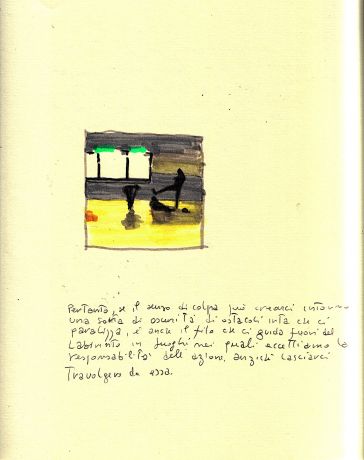 Pertanto, se il senso di colpa può crearci intorno
una sorta di oscurità di ostacoli che ci
paralizza, è anche il filo che ci guida fuori del
Labirinto in luoghi nei quali accettiamo la
responsabilità delle azioni, anziché lasciarci
Travolgere da essa.